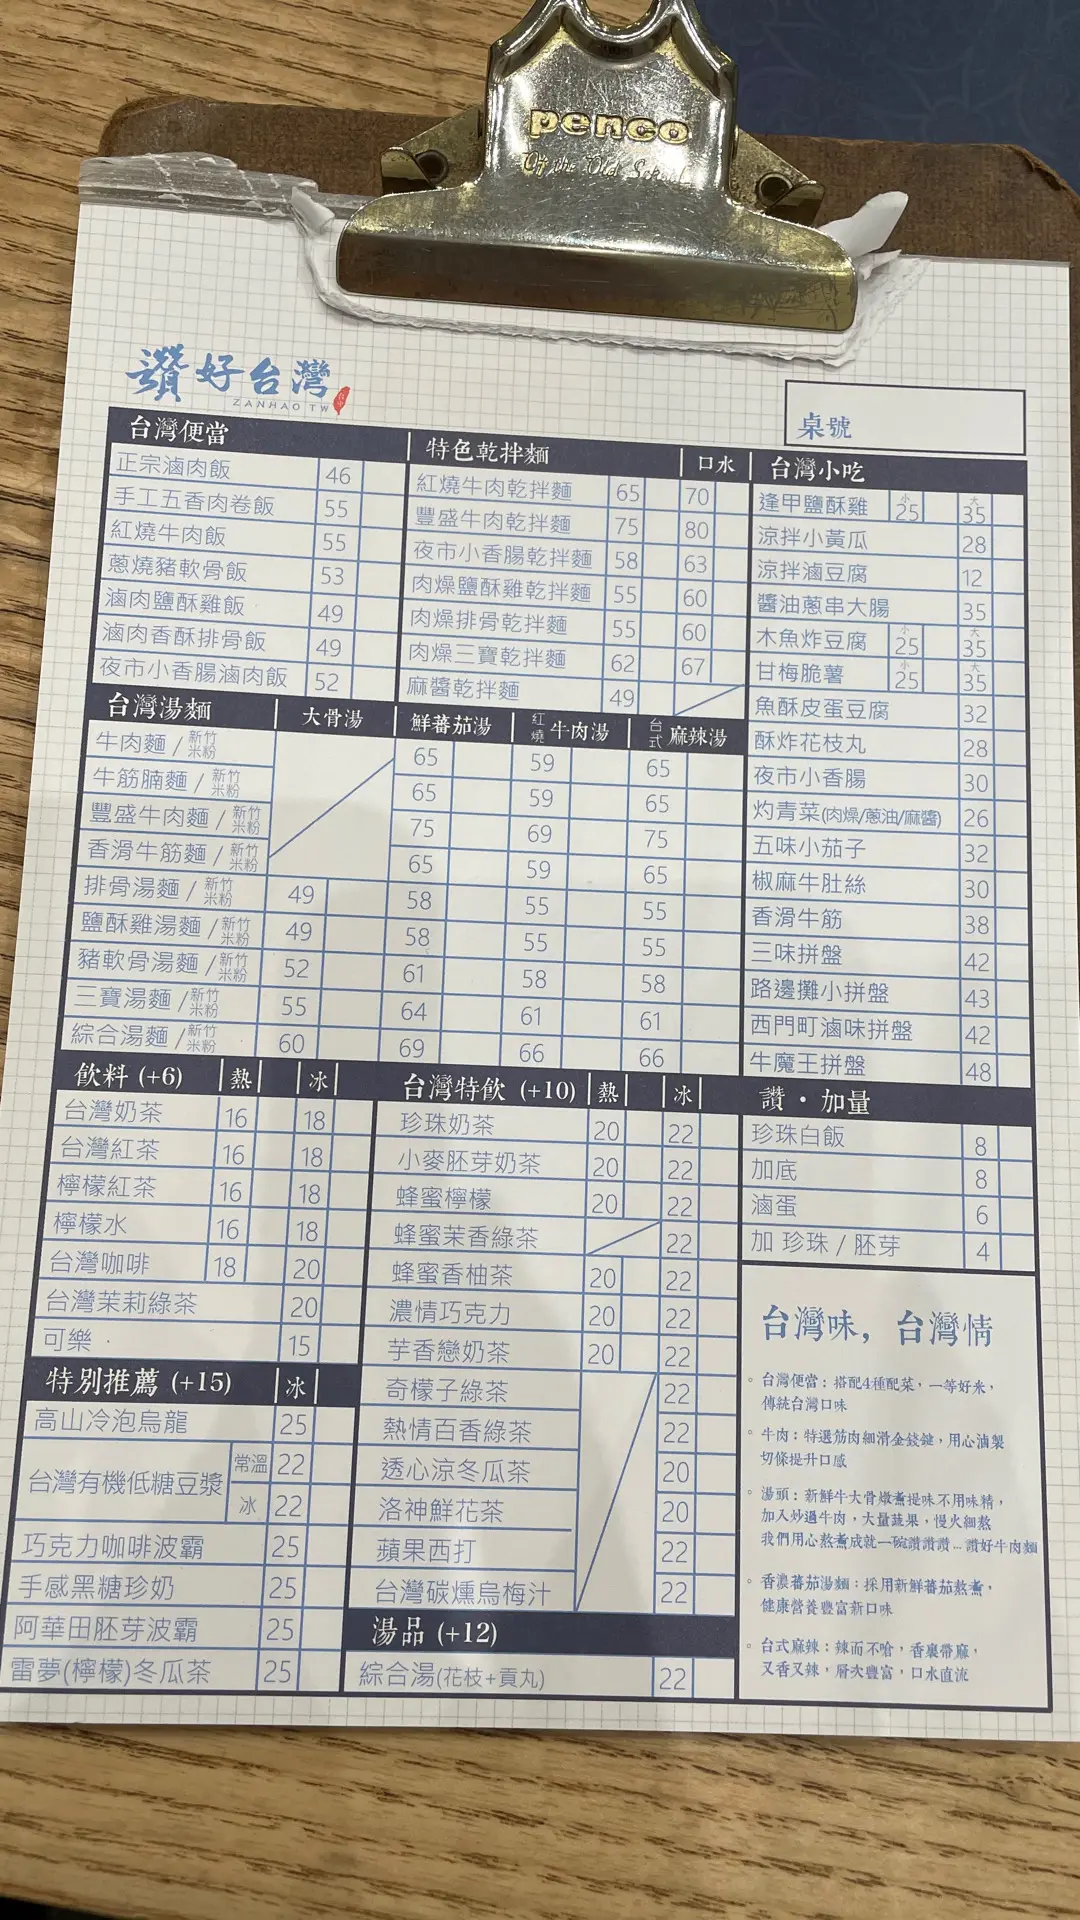 penco
Of the Old School
讚好台灣
ZANHAO TW
桌號
台灣便當
正宗滷肉飯 46
手工五香肉卷飯 55
紅燒牛肉飯 55
蔥燒豬軟骨飯 53
滷肉鹽酥雞飯 49
滷肉香酥排骨飯 49
夜市小香腸滷肉飯 52
特色乾拌麵 口水
紅燒牛肉乾拌麵 65 70
豐盛牛肉乾拌麵 75 80
夜市小香腸乾拌麵 58 63
肉燥鹽酥雞乾拌麵 55 60
肉燥排骨乾拌麵 55 60
肉燥三寶乾拌麵 62 67
麻醬乾拌麵 49
台灣小吃
逢甲鹽酥雞 小25 大35
涼拌小黃瓜 28
涼拌滷豆腐 12
醬油蔥串大腸 35
木魚炸豆腐 小25 大35
甘梅脆薯 小25 大35
魚酥皮蛋豆腐 32
酥炸花枝丸 28
夜市小香腸 30
灼青菜(肉燥/蔥油/麻醬) 26
五味小茄子 32
椒麻牛肚絲 30
香滑牛筋 38
三味拼盤 42
路邊攤小拼盤 43
西門町滷味拼盤 42
牛魔王拼盤 48
台灣湯麵 大骨湯 鮮蕃茄湯 紅燒牛肉湯 台式麻辣湯
牛肉麵/新竹米粉 65 59 65
牛筋腩麵/新竹米粉 65 59 65
豐盛牛肉麵/新竹米粉 75 69 75
香滑牛筋麵/新竹米粉 65 59 65
排骨湯麵/新竹米粉 49 58 55 55
鹽酥雞湯麵/新竹米粉 49 58 55 55
豬軟骨湯麵/新竹米粉 52 61 58 58
三寶湯麵/新竹米粉 55 64 61 61
綜合湯麵/新竹米粉 60 69 66 66
飲料 (+6) 熱 冰
台灣奶茶 16 18
台灣紅茶 16 18
檸檬紅茶 16 18
檸檬水 16 18
台灣咖啡 18 20
台灣茉莉綠茶 20
可樂 15
特別推薦 (+15) 冰
高山冷泡烏龍 25
台灣有機低糖豆漿 常溫 22
冰 22
巧克力咖啡波霸 25
手感黑糖珍奶 25
阿華田胚芽波霸 25
雷夢(檸檬)冬瓜茶 25
台灣特飲 (+10) 熱 冰
珍珠奶茶 20 22
小麥胚芽奶茶 20 22
蜂蜜檸檬 20 22
蜂蜜茉香綠茶 22
蜂蜜香柚茶 20 22
濃情巧克力 20 22
芋香戀奶茶 20 22
奇檬子綠茶 22
熱情百香綠茶 22
透心涼冬瓜茶 20
洛神鮮花茶 20
蘋果西打 22
台灣碳燻烏梅汁 22
湯品 (+12)
綜合湯(花枝+貢丸) 22
讚・加量
珍珠白飯 8
加底 8
滷蛋 6
加 珍珠 / 胚芽 4
台灣味，台灣情
。台灣便當：搭配4種配菜，一等好米，
傳統台灣口味
。牛肉：特選筋肉細滑金錢腱，用心滷製
切條提升口感
。湯頭：新鮮牛大骨燉煮提味不用味精，
加入炒過牛肉，大量蔬果，慢火細熬
我們用心熬煮成就一碗讚讚讚...讚好牛肉麵
。香濃蕃茄湯麵：採用新鮮蕃茄熬煮，
健康營養豐富新口味
。台式麻辣：辣而不嗆，香裏帶麻，
又香又辣，層次豐富，口水直流